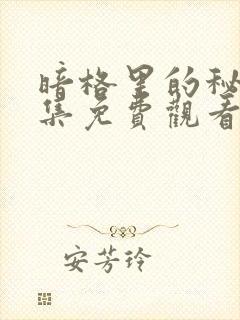 暗格里的秘
集免費觀看
安芳玲